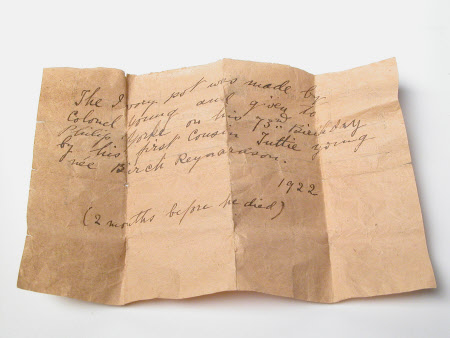 The Ivory pot was made by
Colonel Young and given to
Philip Yorke on his 73rd Birthday
by his first Cousin Tuttie Young
née Birch Reynardson.
1922
(2 months before he died)